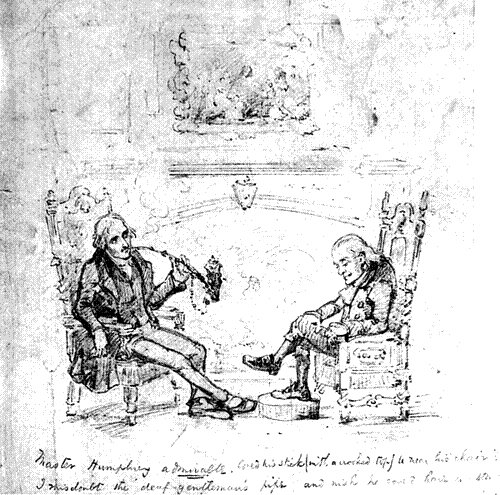 Master Humphrey admirable. Could his stick (with a crooked top) be near his chair?
I misdoubt the deaf gentleman's pipe and wish he could have a